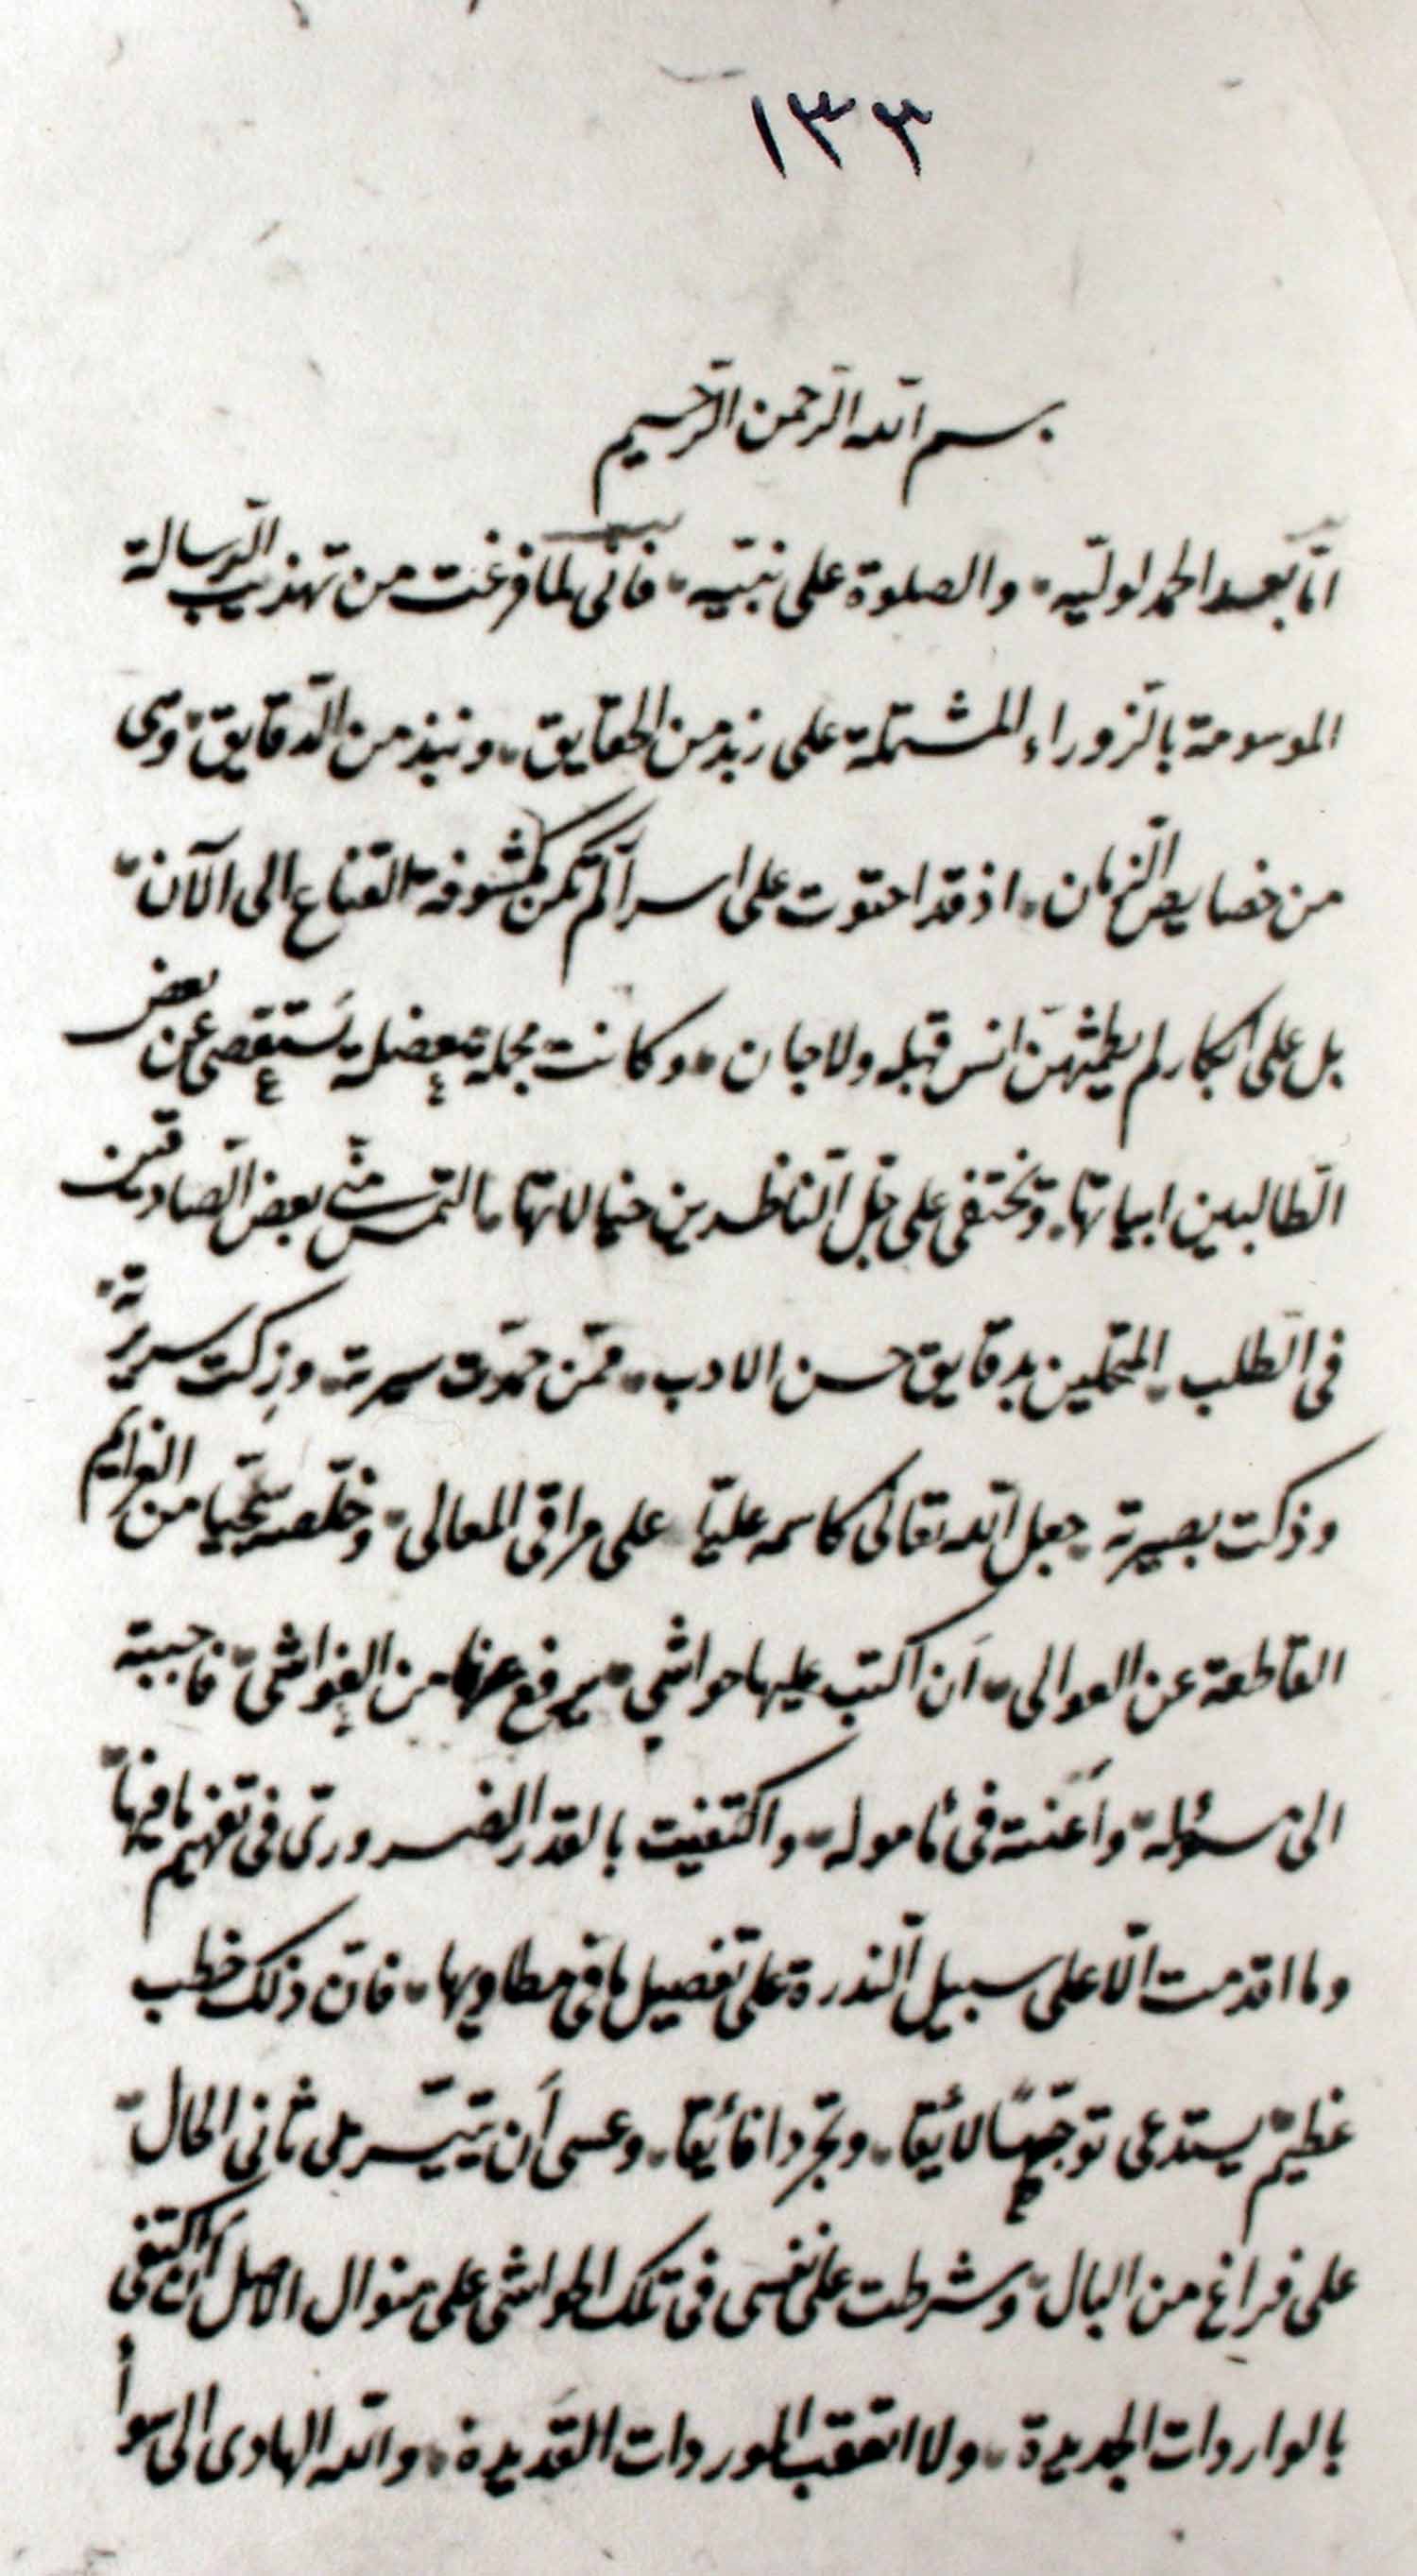 ١٣٣
بسم الله الرحمن الرحيم
امّا بعد الحمد لوليّه والصلوة على نبيّه فانّى لمّا فرغت من تهذيب الرّسالة
الموسومة بالزّوراء المشتملة على زبد من الحقايق ونبذ من الدّقايق وهى
من خصايص الزّمان اذ قد احتوت على اسرار لم تكن مكشوفة القناع الى الآن
بل على ابكار لم يطمثهنّ انس قبله ولا جان وكانت مجملة معضلة يستعصى عن بعض
الطّالبين ابياتها وتختفى على جلّ النّاظرين خيالاتها التمس منّى بعض الصّادقين
فى الطّلب المتحلّين بدقايق حسن الادب ممّن حمدت سيرته وزكت سريرته
وذكت بصيرته جعل الله تعالى كاسمه عليّا على مراقى المعالى وخلّصه نجيّا من
القاطعة عن العوالى ان اكتب عليها حواشى يرفع عنها من الغواشى فاجبته
الى مسؤله واعنته فى مأموله واكتفيت بالقدر الضرورىّ فى تفهيم ما فيها
وما اقدمت الّا على سبيل النّدرة على تفصيل ما فى مطاويها فانّ ذلك خطب
عظيم يستدعى توجّهًا لائقا وتجرّدا فائقا وعسى أن يتيسّر لى ثانى الحال
على فراغ من البال وشرطت على نفسى فى تلك الحواشى على منوال الاصل أن أكتفى
بالواردات الجديدة ولا اتعقب الموردات القديمة والله الهادى الى سواء